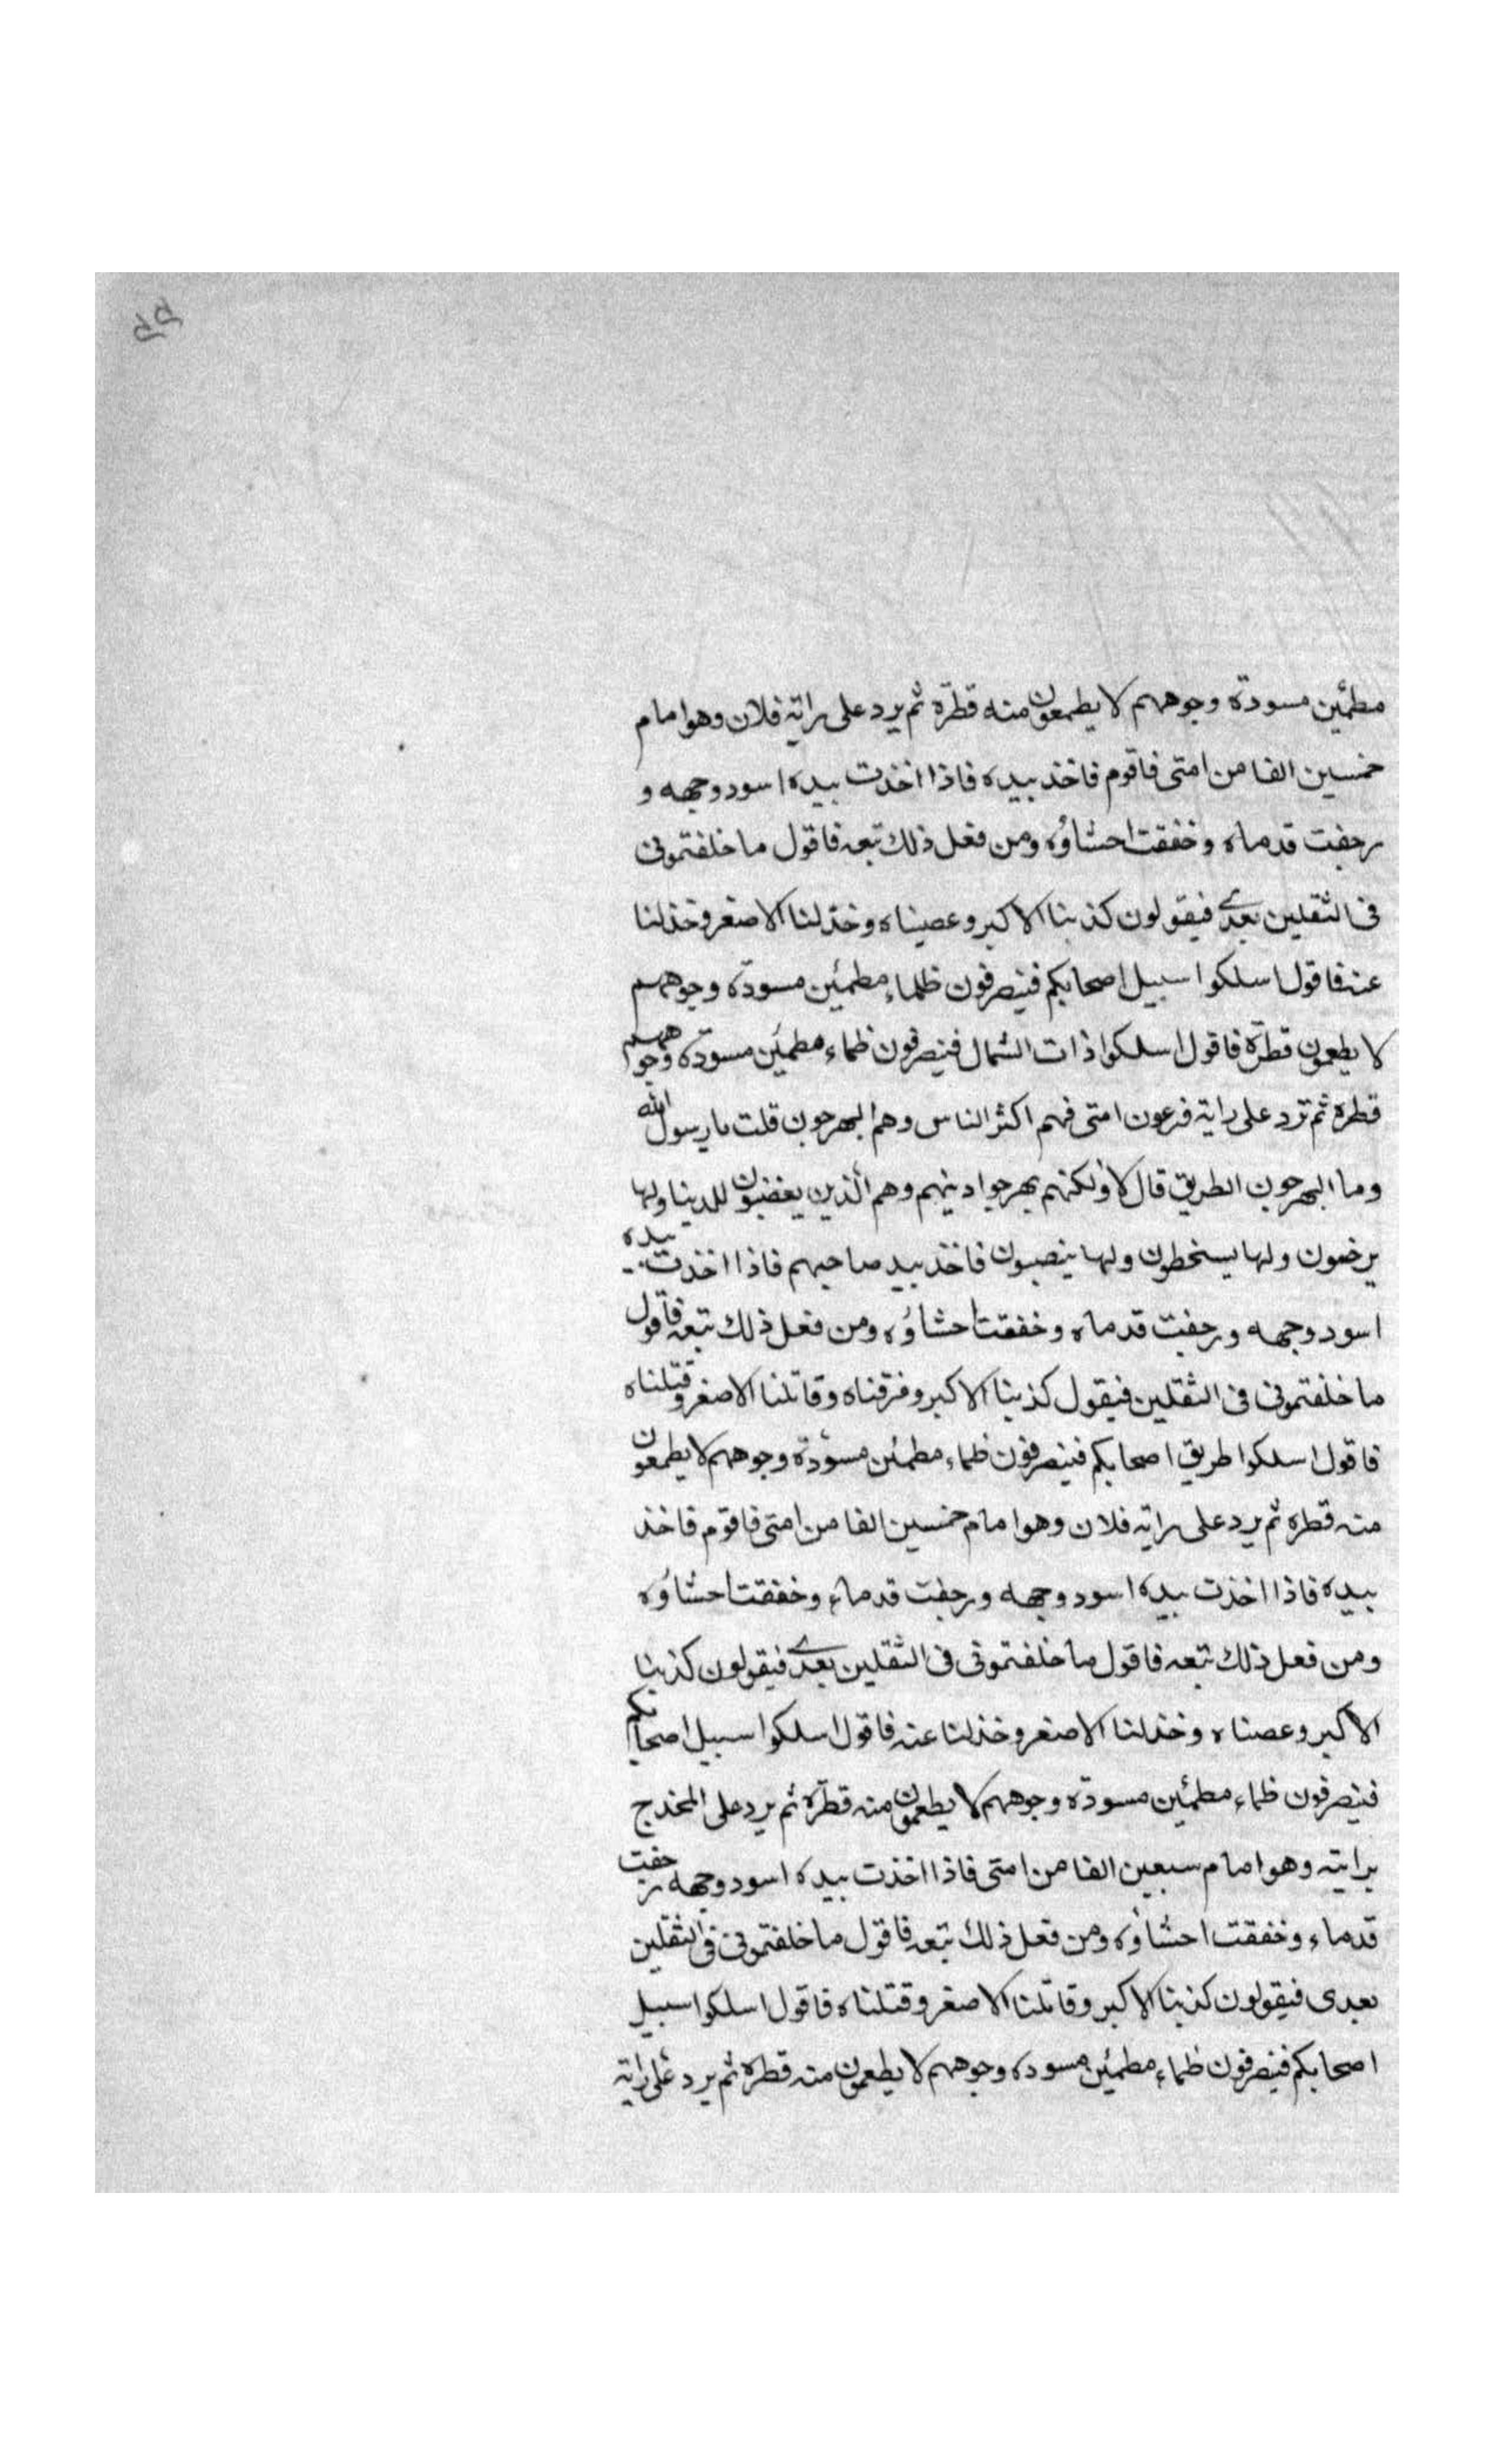 مطمئين مسودة وجوههم لا يطعمون منه قطرة ثم يرد على راية فلان وهو امام
خمسين الفا من امتى فاقوم فاخذ بيده فاذا اخذت بيده اسود وجهه و
رجفت قدماه وخفقت احشاؤه ومن فعل ذلك تبعه فاقول ما خلفتمونى
فى الثقلين بعدى فيقولون كذبنا الاكبر وعصيناه وخذلنا الاصغر وخذلنا
عنه فاقول اسلكوا سبيل اصحابكم فينصرفون ظماء مطمئين مسودة وجوههم
لا يطعمون قطرة فاقول اسلكوا ذات الشمال فينصرفون ظماء مطمئين مسودة وجوههم
قطرة ثم ترد على راية فرعون امتى فهم اكثر الناس وهم البهرجون قلت يا رسول الله
وما البهرجون الطريق قال لا ولكنهم بهرجوا دينهم وهم الذين يغضبون للدينا ولها
يرضون ولها يسخطون ولها ينصبون فاخذ بيد صاحبهم فاذا اخذت بيده
اسود وجهه ورجفت قدماه وخفقت احشاؤه ومن فعل ذلك تبعه فاقول
ما خلفتمونى فى الثقلين فيقول كذبنا الاكبر وفرقناه وقاتلنا الاصغر وقتلناه
فاقول اسلكوا طريق اصحابكم فينصرفون ظماء مطمئن مسودة وجوههم لا يطعمون
منه قطرة ثم يرد على راية فلان وهو امام خمسين الفا من امتى فاقوم فاخذ
بيده فاذا اخذت بيده اسود وجهه ورجفت قدماه وخفقت احشاؤه
ومن فعل ذلك تبعه فاقول ما خلفتمونى فى الثقلين بعدى فيقولون كذبنا
الاكبر وعصناه وخذلنا الاصغر وخذلنا عنه فاقول اسلكوا سبيل اصحابكم
فينصرفون ظماء مطمئين مسودة وجوههم لا يطعمون منه قطرة ثم يرد على المخدج
برايته وهو امام سبعين الفا من امتى فاذا اخذت بيده اسود وجهه رجفت
قدماء وخفقت احشاؤه ومن فعل ذلك تبعه فاقول ما خلفتمونى فى الثقلين
بعدى فيقولون كذبنا الاكبر وقاتلنا الاصغر وقتلناه فاقول اسلكوا سبيل
اصحابكم فينصرفون ظماء مطمئين مسودة وجوههم لا يطعمون منه قطرة ثم يرد على راية